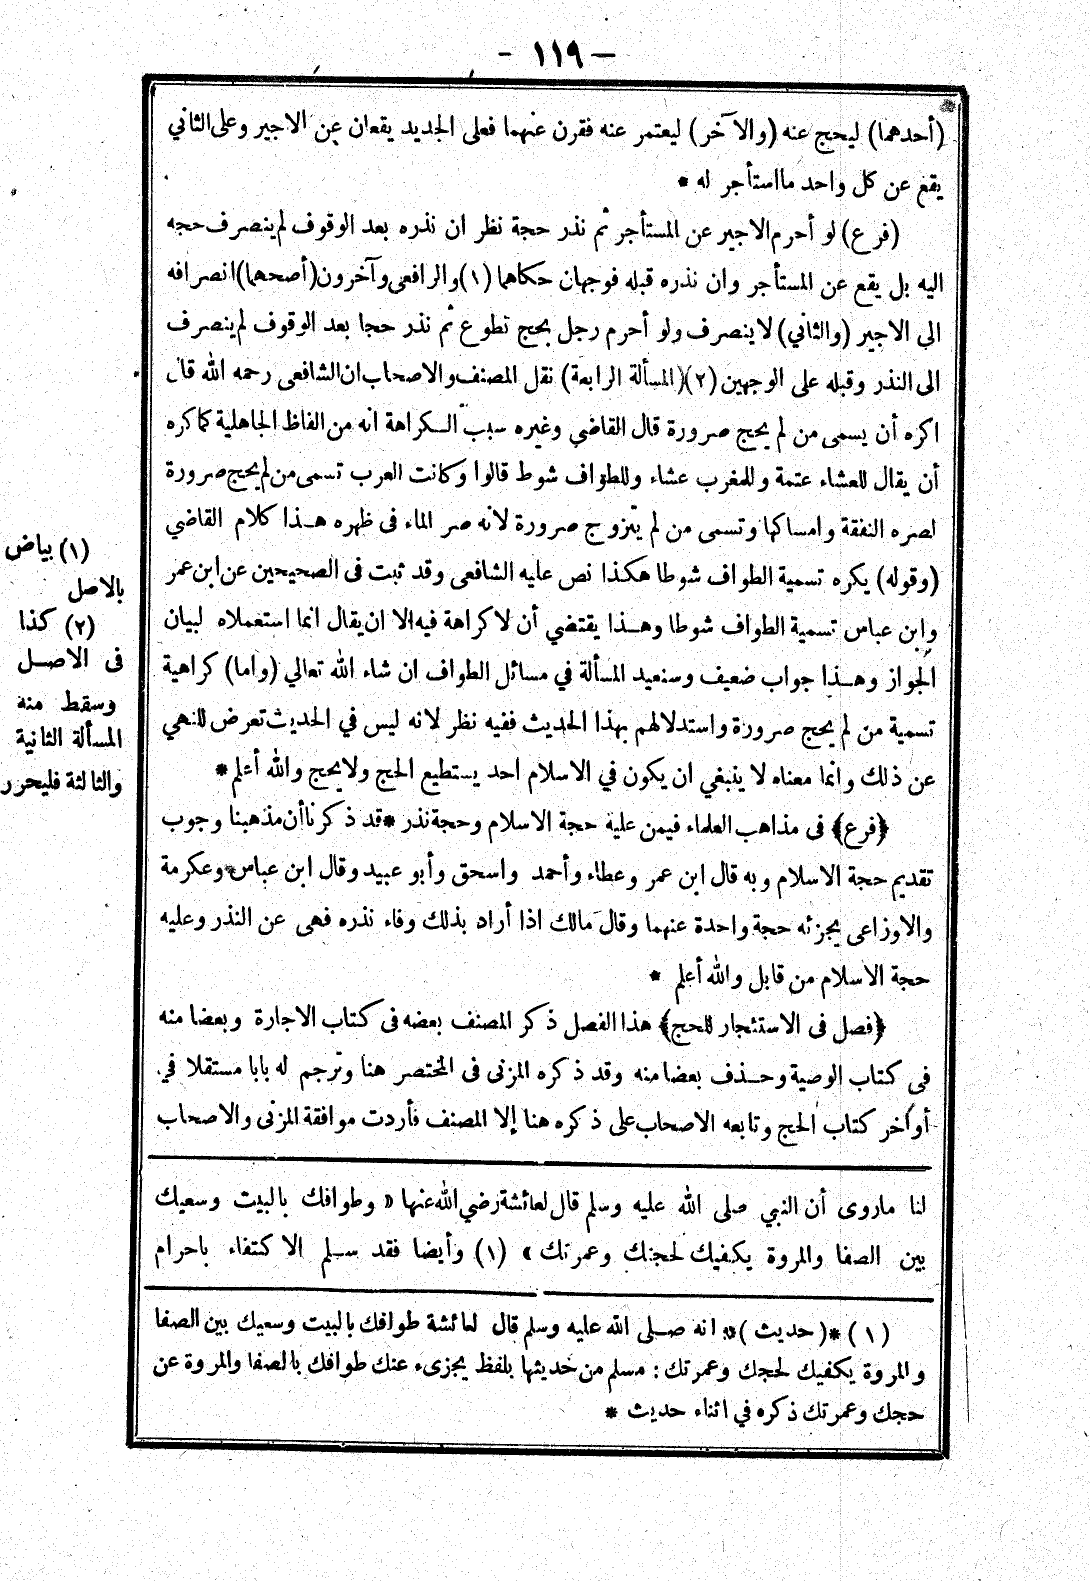 — ١١٩ -
(أحدهما) ليحج عنه (والآخر) ليعتمر عنه فقرن عنهما فعلى الجديد يقعان عن الاجير وعلى الثاني
يقع عن كل واحد مااستأجر له *
(فرع) لو أحرم الاجير عن المستأجر ثم نذر حجة نظر ان نذره بعد الوقوف لم ينصرف حجه
اليه بل يقع عن المستأجر وان نذره قبله فوجهان حكاهما (١) والرافعى وآخرون (أصحهما) انصرافه
الى الاجير (والثاني) لا ينصرف ولو أحرم رجل بحج تطوع ثم نذر حجا بعد الوقوف لم ينصرف
الى النذر وقبله على الوجهين (٢) (المسألة الرابعة) نقل المصنف والاصحاب ان الشافعى رحمه الله قال
اكره أن يسمى من لم يحج صرورة قال القاضي وغيره سبب الكراهة انه من الفاظ الجاهلية كما كره
أن يقال للعشاء عتمة وللمغرب عشاء وللطواف شوط قالوا وكانت العرب تسمى من لم يحج صرورة
لصره النفقة وامساكها وتسمى من لم يتزوج صرورة لانه صر الماء فى ظهره هذا كلام القاضي
(وقوله) يكره تسمية الطواف شوطا هكذا نص عليه الشافعى وقد ثبت فى الصحيحين عن ابن عمر
وابن عباس تسمية الطواف شوطا وهذا يقتضي أن لا كراهة فيه الا ان يقال انما استعملاه لبيان
الجواز وهذا جواب ضعيف وسنعيد المسألة في مسائل الطواف ان شاء الله تعالي (واما) كراهية
تسمية من لم يحج صرورة واستدلالهم بهذا الحديث ففيه نظر لانه ليس في الحديث تعرض للنهي
عن ذلك وانما معناه لا ينبغي ان يكون في الاسلام احد يستطيع الحج ولا يحج والله أعلم *
﴿فرع﴾ فى مذاهب العلماء فيمن عليه حجة الاسلام وحجة نذر * قد ذكرنا أن مذهبنا وجوب
تقديم حجة الاسلام وبه قال ابن عمر وعطاء وأحمد واسحق وأبو عبيد وقال ابن عباس وعكرمة
والاوزاعى يجزئه حجة واحدة عنهما وقال مالك اذا أراد بذلك وفاء نذره فهى عن النذر وعليه
حجة الاسلام من قابل والله أعلم *
﴿فصل فى الاستئجار للحج﴾ هذا الفصل ذكر المصنف بعضه فى كتاب الاجارة وبعضا منه
فى كتاب الوصية وحذف بعضا منه وقد ذكره المزنى فى المختصر هنا وترجم له بابا مستقلا في
أواخر كتاب الحج وتابعه الاصحاب على ذكره هنا إلا المصنف فأردت موافقة المزنى والاصحاب
(١) بياض
بالاصل
(٢) كذا
فى الاصل
وسقط منه
المسألة الثانية
والثالثة فليحرر
لنا ماروى أن النبي صلى الله عليه وسلم قال لعائشة رضي الله عنها « وطوافك بالبيت وسعيك
بين الصفا والمروة يكفيك لحجك وعمرتك » (١) وأيضا فقد سلم الاكتفاء باحرام
(١) * (حديث) * انه صلى الله عليه وسلم قال لعائشة طوافك بالبيت وسعيك بين الصفا
والمروة يكفيك لحجك وعمرتك : مسلم من حديثها بلفظ يجزىء عنك طوافك بالصفا والمروة عن
حجك وعمرتك ذكره في اثناء حديث *